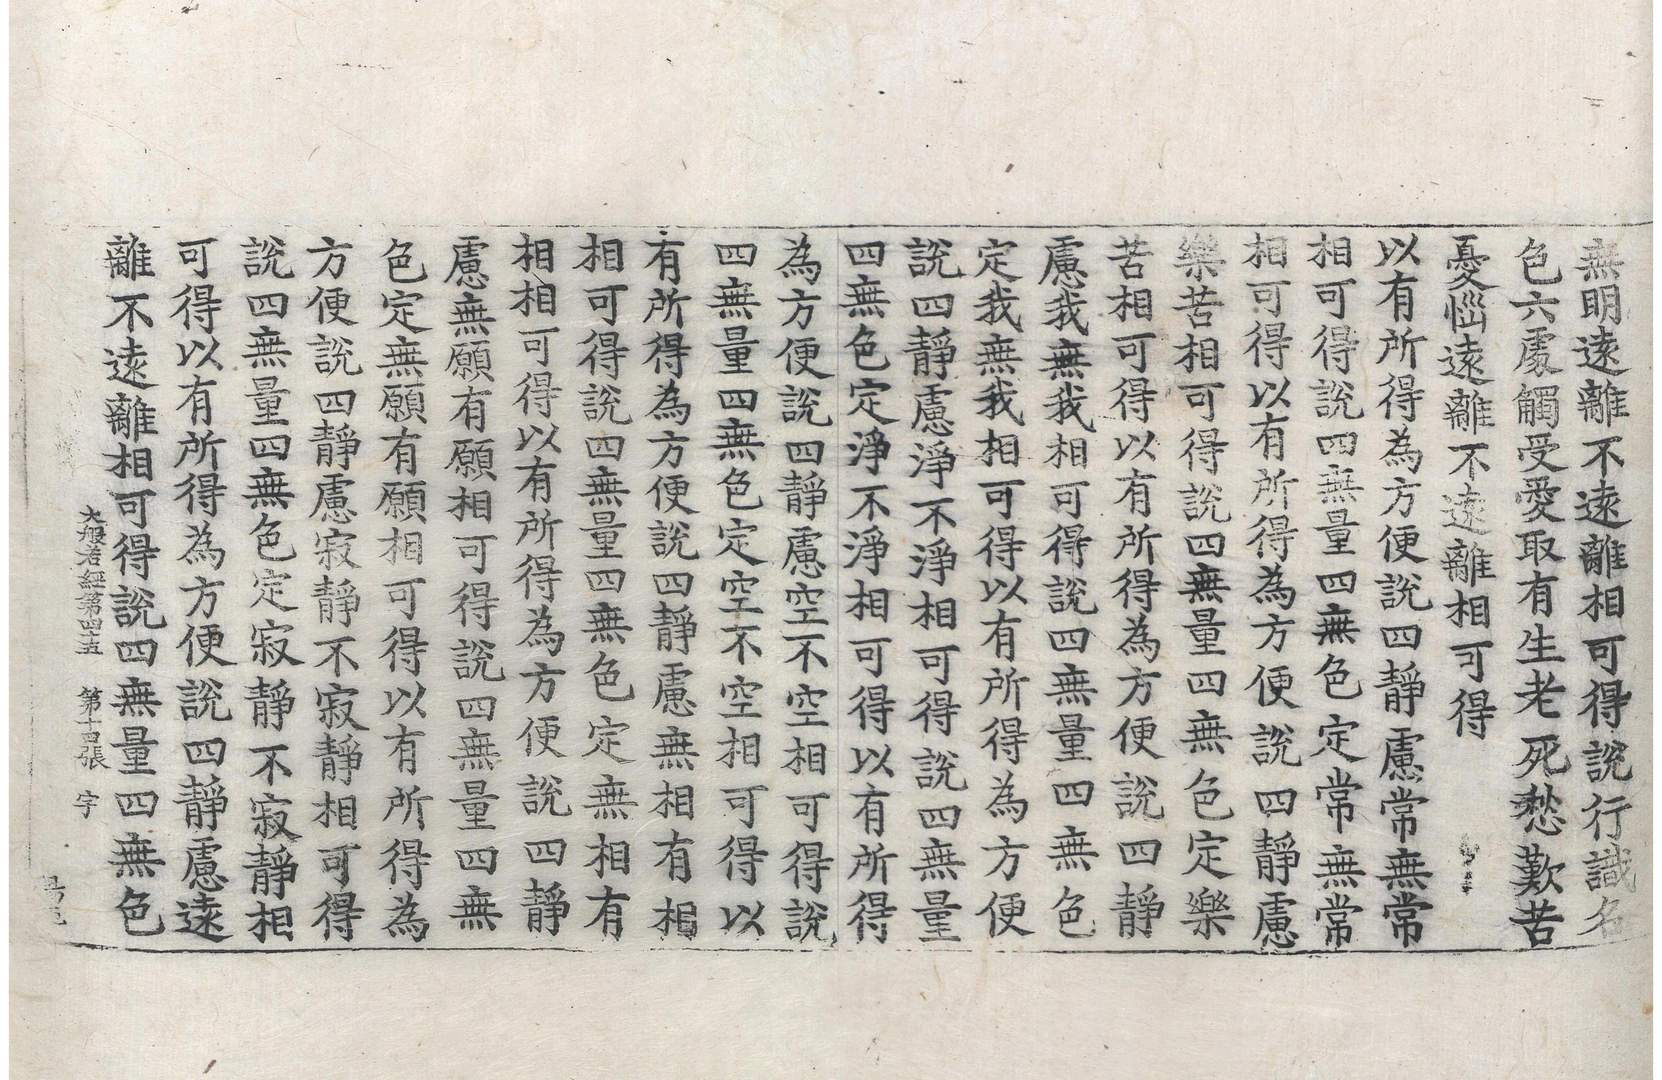 無明遠離不遠離相可得說行識名
色六處觸受愛取有生老死愁歎苦
憂惱遠離不遠離相可得
以有所得為方便說四靜慮常無常
相可得說四無量四無色定常無常
相可得以有所得為方便說四靜慮
樂苦相可得說四無量四無色定樂
苦相可得以有所得為方便說四靜
慮我無我相可得說四無量四無色
定我無我相可得以有所得為方便
說四靜慮淨不淨相可得說四無量
四無色定淨不淨相可得以有所得
為方便說四靜慮空不空相可得說
四無量四無色定空不空相可得以
有所得為方便說四靜慮無相有相
相可得說四無量四無色定無相有
相相可得以有所得為方便說四靜
慮無願有願相可得說四無量四無
色定無願有願相可得以有所得為
方便說四靜慮寂靜不寂靜相可得
說四無量四無色定寂靜不寂靜相
可得以有所得為方便說四靜慮遠
離不遠離相可得說四無量四無色
大般若經第四十五 第十四張 字